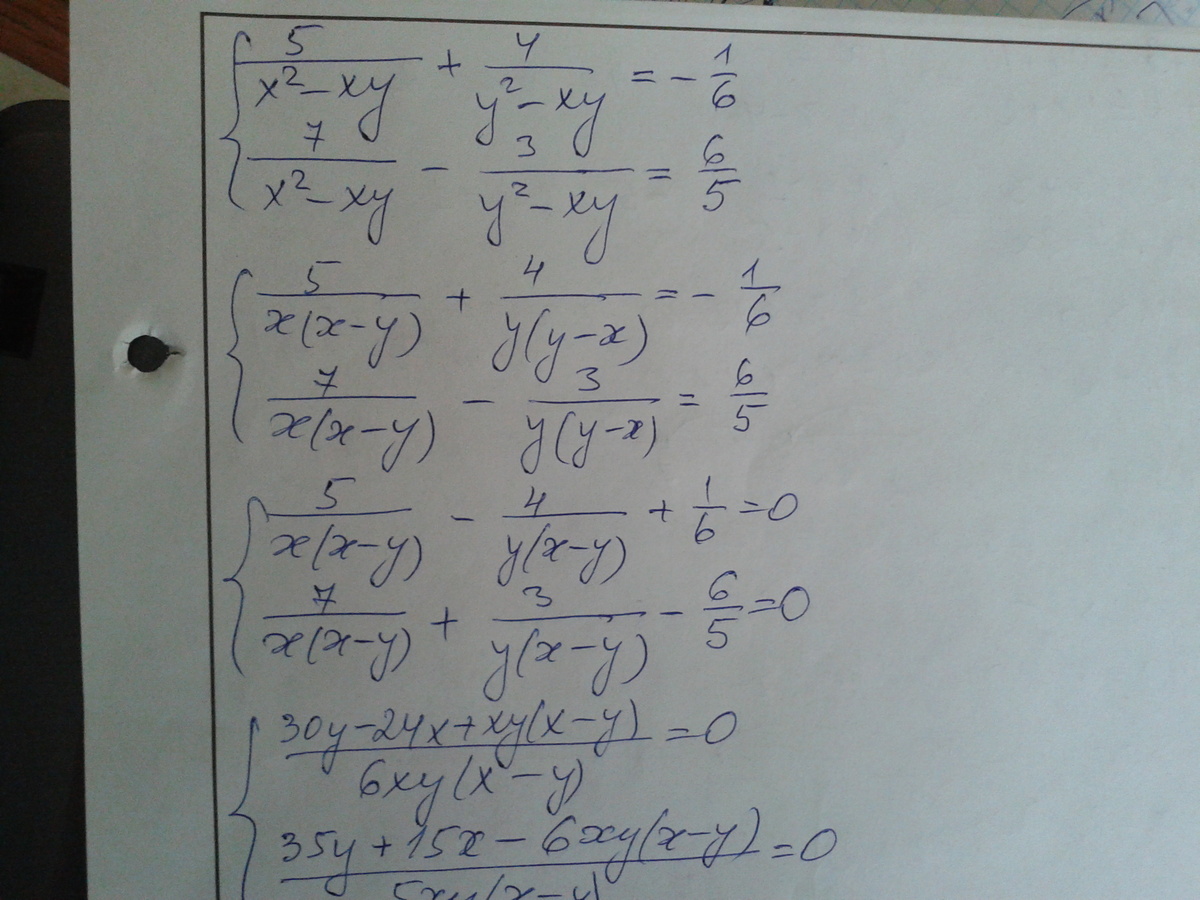 5/(x² – xy) + 4/(y² – xy) = – 1/6
7/(x² – xy) – 3/(y² – xy) = 6/5
5/(x(x–y)) + 4/(y(y–x)) = – 1/6
7/(x(x–y)) – 3/(y(y–x)) = 6/5
5/(x(x–y)) – 4/(y(x–y)) + 1/6 = 0
7/(x(x–y)) + 3/(y(x–y)) – 6/5 = 0
(30y–24x+xy(x–y))/(6xy(x–y)) = 0
(35y+15x–6xy(x–y))/(5xy(x–y)) = 0